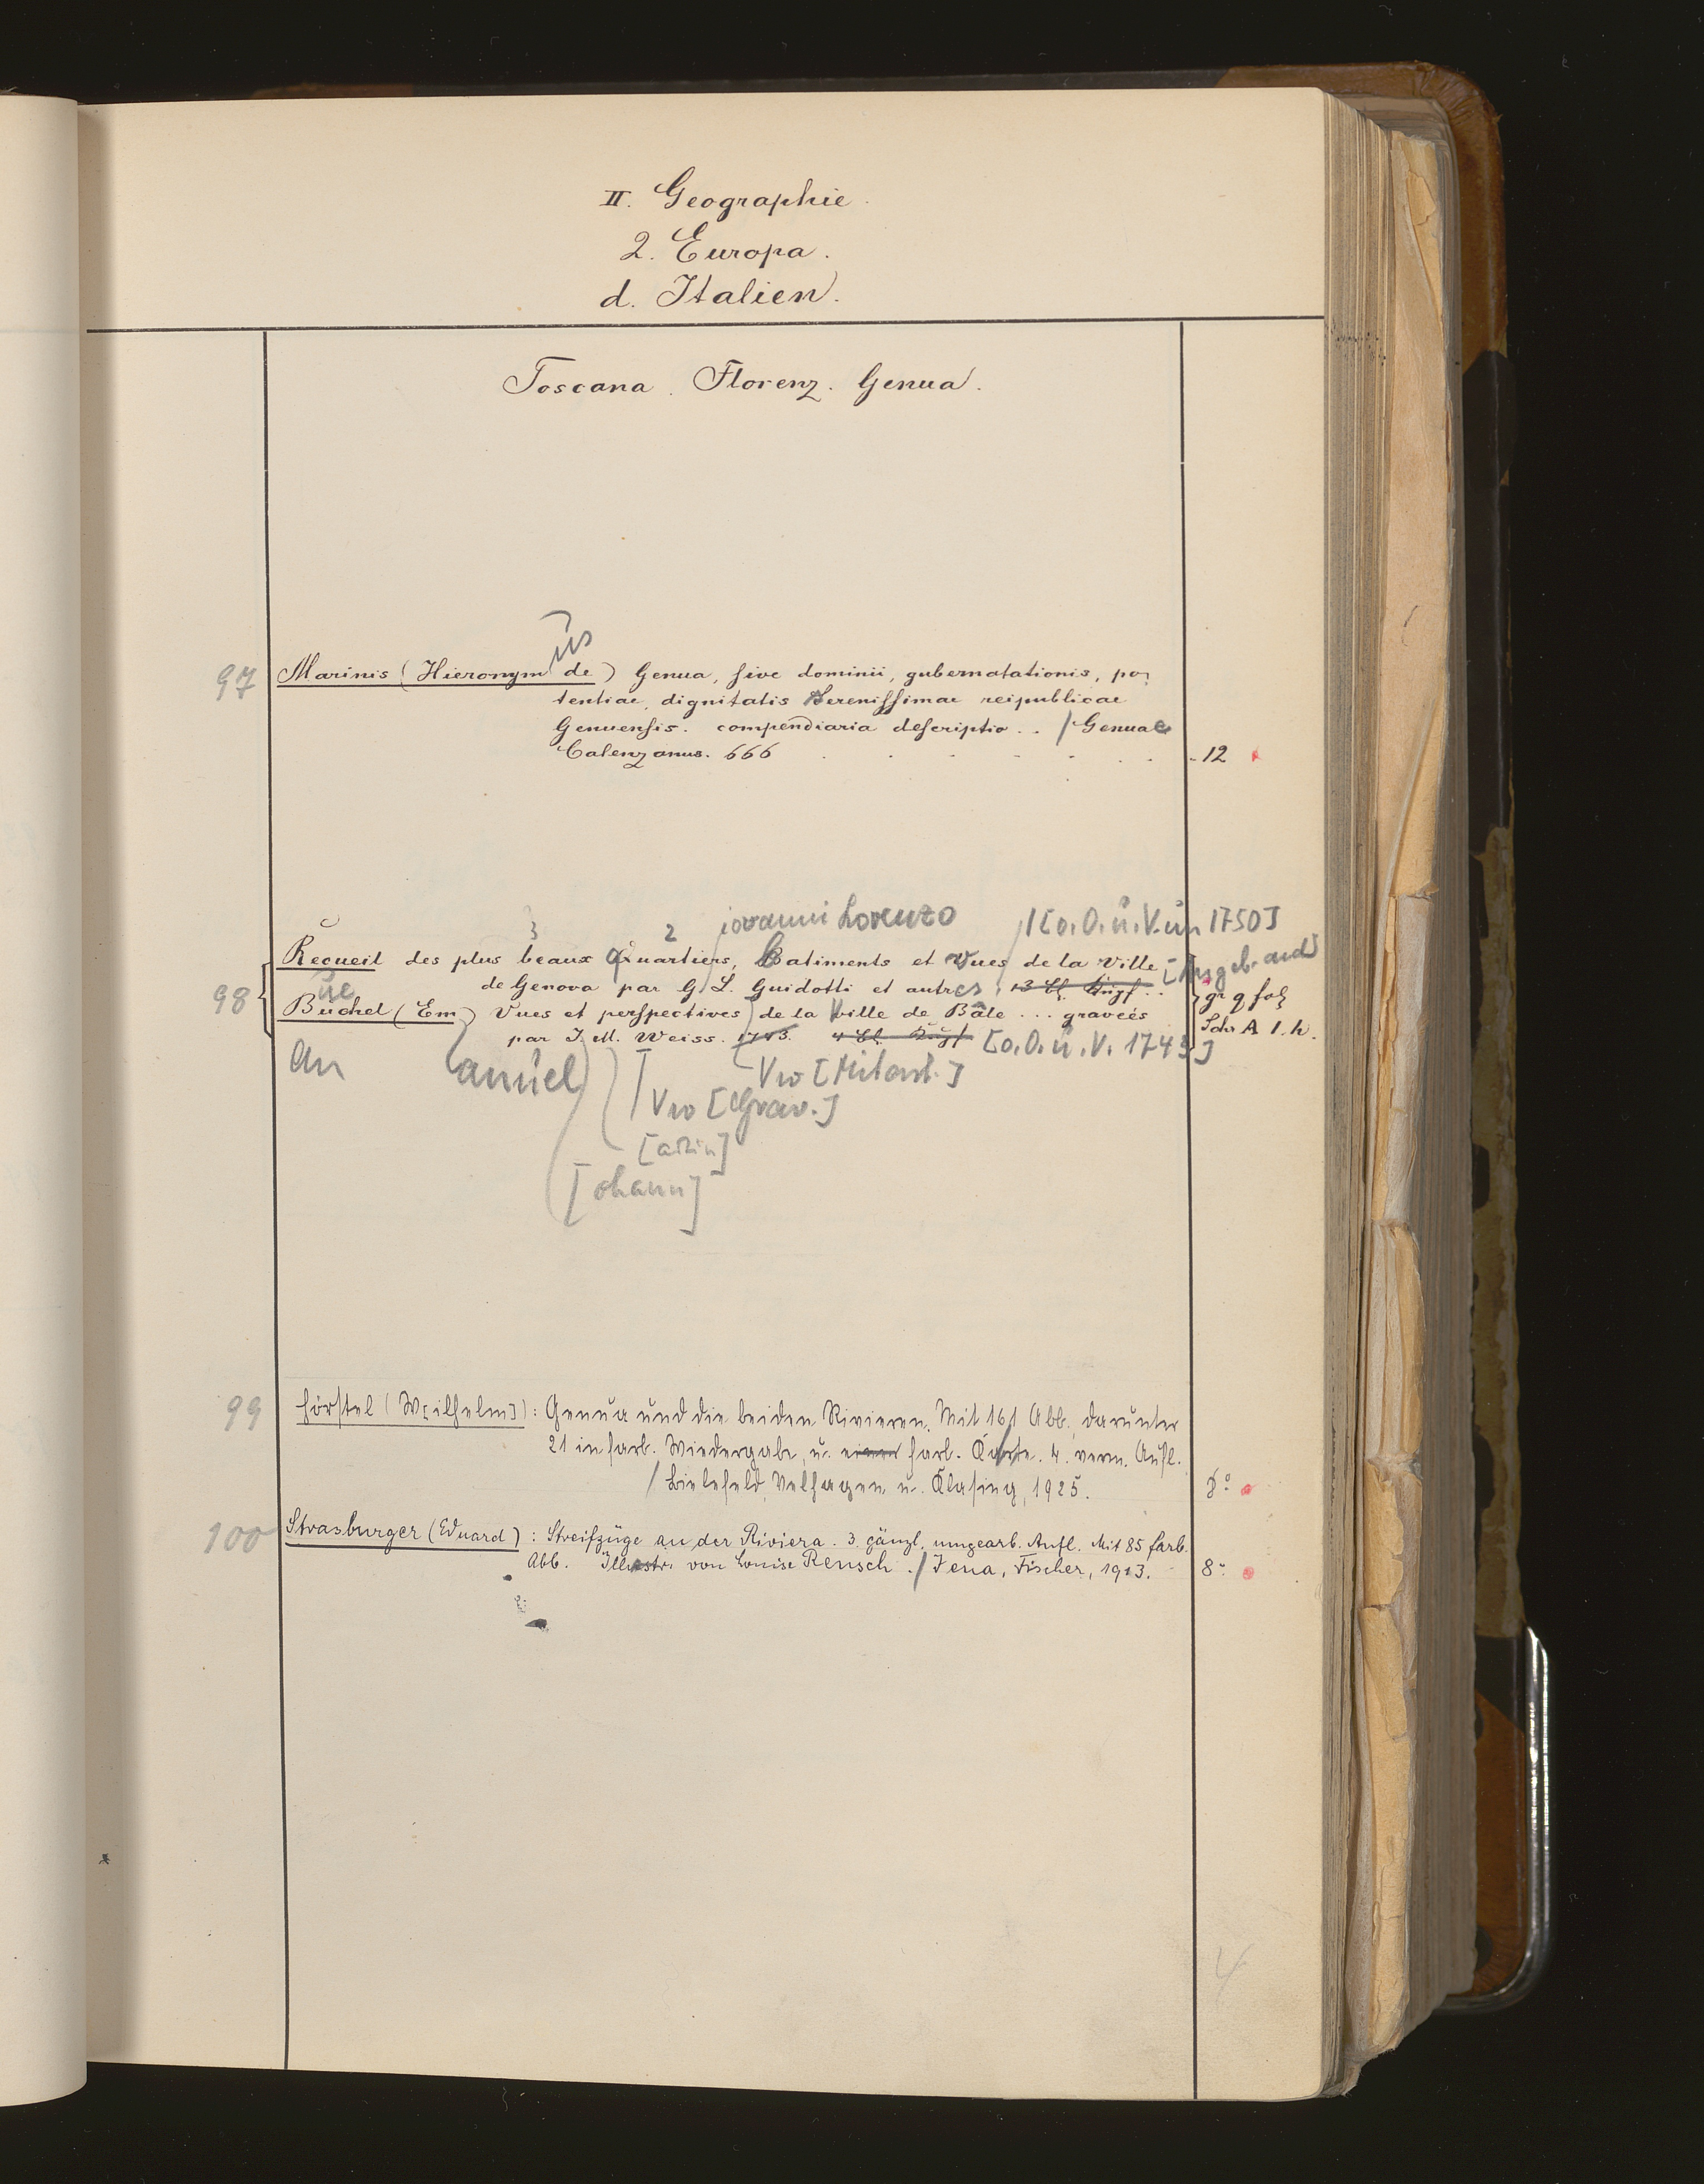 II. Geographie.
2. Europa.
d. Italien.
Toscana. Florenz. Genua.
us
97 Marinis (Hieronym de) Genua, sive dominii, gubernatationis, po-
tentiae, dignitatis serenissimae reipublicae
Genuensis. compendiaria descriptio .. / Genuae
Calenzanus. 666 . . . . . . 12
3 2 iovanni Lorenzo /[o.O.u.V.um 1750]
98 Recueil des plus beaux Quartiers, Batiments et Vues de la Ville [Angeb. and]
de Genova par G. L. Guidotti et autres, 13 Bl. ... gr q fol
üc
Büchel (Em) Vues et perspectives de la Ville de Bâle ... graveés Schr A 1. h.
par J. M. Weiss. 1743. 4 Bl. [o.O.u.V. 1743]
an anuel Vw [Mitarb.]
Vw [Grav.]
[ohann]
99 Hörstel (W[ilhelm]): Genua und die beiden Rivieren. Mit 161 Abb., darunter
21 in farb. Wiedergabe, u. einer farb. Karte. 4. verm. Aufl.
/ Bielefeld, Velhagen u. Klasing, 1925. 8°
100 Strasburger (Eduard): Streifzüge an der Riviera. 3. gänzl. umgearb. Aufl. Mit 85 farb.
Abb. Illustr. von Louise Reusch. / Jena, Fischer, 1913. 8°
4